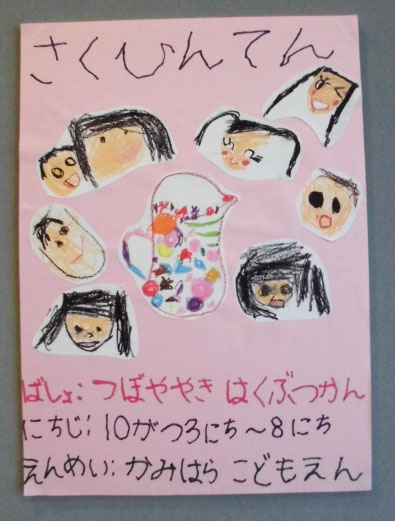 さくひんてん
ばしょ: つぼややき はくぶつかん
にちじ: 10がつ3にち〜8にち
えんめい: かみはら こどもえん